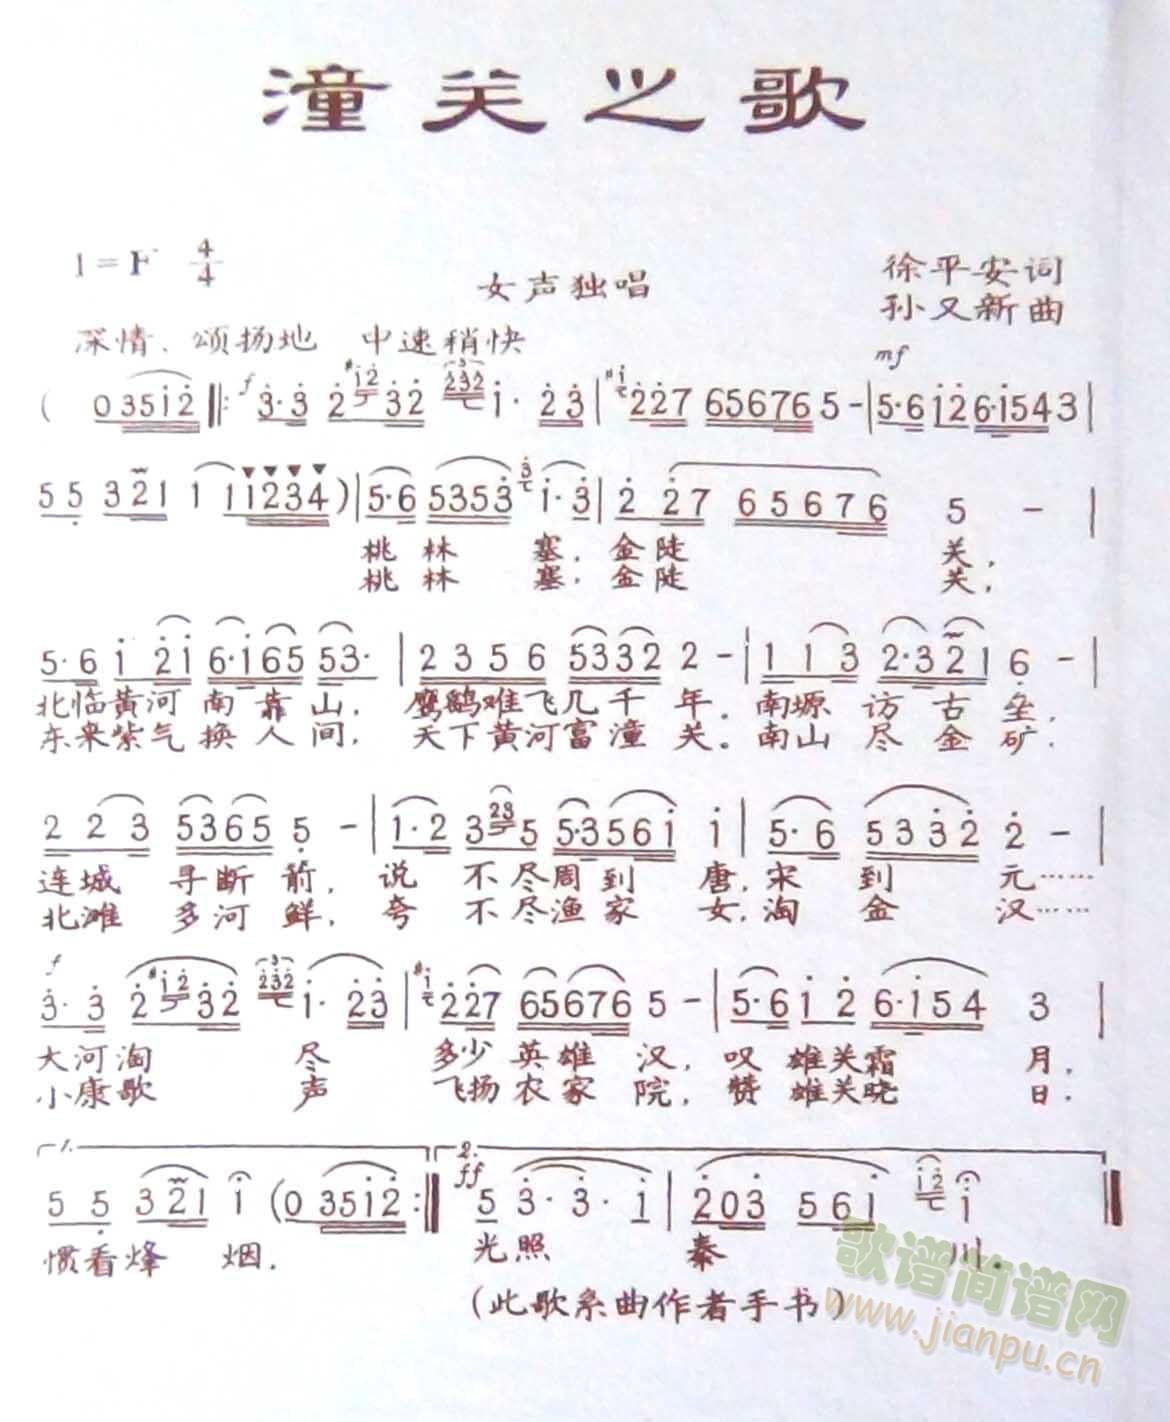 潼关之歌
1=F 4/4
女声独唱
徐平安词
孙又新曲
深情、颂扬地 中速稍快
mf
( 0 3 5 i 2 ‖: f 3·3 2 #i2 3 2 232 i· 2 3 | #i 2 2 7 6 5 6 7 6 5 - | 5·6 i 2 6·i 5 4 3 |
5 5 3 2 1 1 1 1 2 3 4 ) | 5·6 5 3 5 3 3 i·3 | 2 2 7 6 5 6 7 6 5 - |
桃林 塞,金陡 关,
桃林 塞,金陡 关,
5·6 i 2 i 6·i 6 5 5 3· | 2 3 5 6 5 3 3 2 2 - | 1 1 3 2·3 2 1 6 - |
北临黄河南靠山, 鹰鹞难飞几千年。南塬访古垒,
东来紫气换人间, 天下黄河富潼关。南山尽金矿,
2 2 3 5 3 6 5 5 - | 1·2 3 23 5 5·3 5 6 i i | 5·6 5 3 3 2 2 - |
连城 寻断箭, 说 不尽周到 唐,宋 到 元……
北滩 多河鲜, 夸 不尽渔家 女,淘 金 汉……
f
3·3 2 #i2 3 2 232 i· 2 3 | #i 2 2 7 6 5 6 7 6 5 - | 5·6 i 2 6·i 5 4 3 |
大河淘 尽 多少英雄 汉,叹 雄关霜 月,
小康歌 声 飞扬农家 院,赞 雄关晓 日,
1. 2.
ff
5 5 3 2 1 i ( 0 3 5 i 2 :‖ 5 3·3·i | 2 0 3 5 6 i i2 i ‖
惯看烽 烟. 光照 秦 川.
(此歌系曲作者手书)
歌谱简谱网
www.jianpu.cn